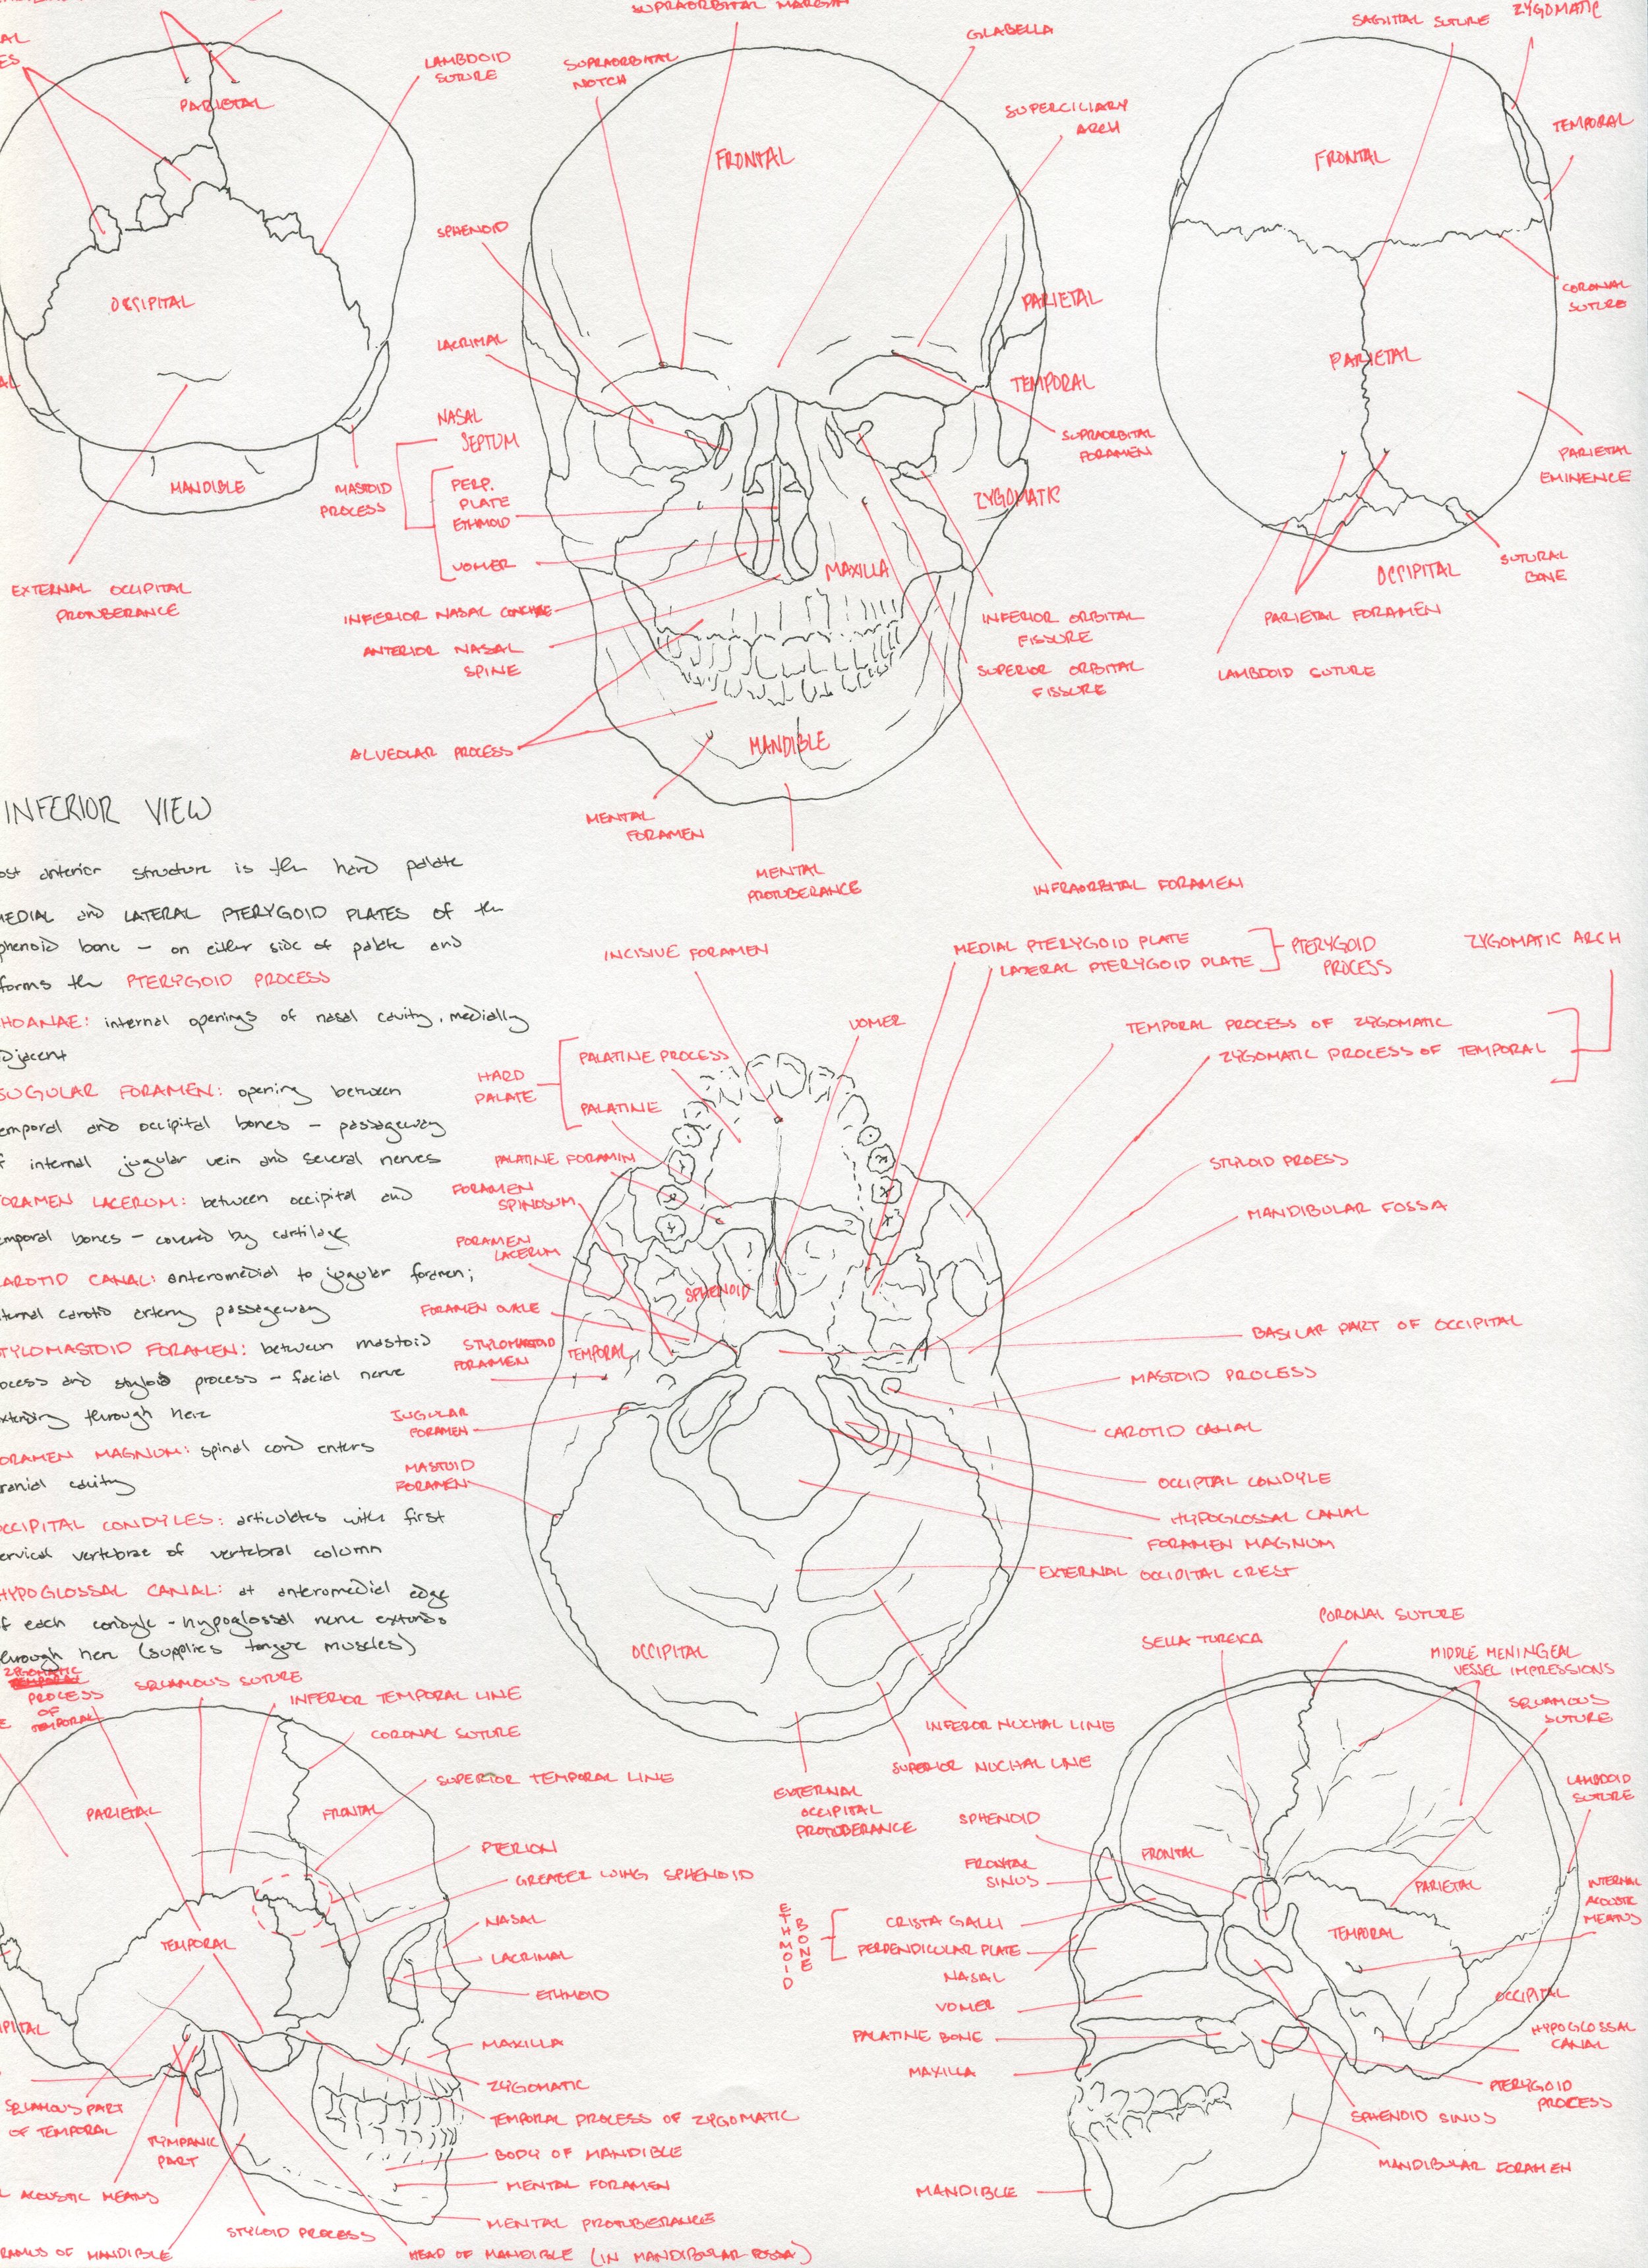 SUPRAORBITAL MARGIN
SAGITTAL SUTURE
ZYGOMATIC
GLABELLA
LAMBDOID
SUTURE
SUPRAORBITAL
NOTCH
PARIETAL
SUPERCILIARY
ARCH
TEMPORAL
FRONTAL
FRONTAL
SPHENOID
OCCIPITAL
PARIETAL
CORONAL
SUTURE
LACRIMAL
PARIETAL
TEMPORAL
NASAL
SEPTUM
SUPRAORBITAL
FORAMEN
PARIETAL
EMINENCE
MANDIBLE
MASTOID
PROCESS
PERP.
PLATE
ETHMOID
ZYGOMATIC
VOMER
MAXILLA
OCCIPITAL
SUTURAL
BONE
EXTERNAL OCCIPITAL
PROTUBERANCE
INFERIOR NASAL CONCHAE
INFERIOR ORBITAL
FISSURE
PARIETAL FORAMEN
ANTERIOR NASAL
SPINE
SUPERIOR ORBITAL
FISSURE
LAMBDOID SUTURE
ALVEOLAR PROCESS
MANDIBLE
MENTAL
FORAMEN
MENTAL
PROTUBERANCE
INFRAORBITAL FORAMEN
INFERIOR VIEW
ost anterior structure is the hard palate
MEDIAL and LATERAL PTERYGOID PLATES of the
phenoid bone - on either side of palate and
forms the PTERYGOID PROCESS
HOANAE: internal openings of nasal cavity, medially
djacent
JUGULAR FORAMEN: opening between
emporal and occipital bones - passageway
f internal jugular vein and several nerves
FORAMEN LACERUM: between occipital and
emporal bones - covered by cartilage
CAROTID CANAL: anteromedial to jugular foramen;
ternal carotid artery passageway
TYLOMASTOID FORAMEN: between mastoid
ocess and styloid process - facial nerve
xtending through here
ORAMEN MAGNUM: spinal cord enters
ranial cavity
OCCIPITAL CONDYLES: articulates with first
ervical vertebrae of vertebral column
HYPOGLOSSAL CANAL: at anteromedial edge
f each condyle - hypoglossal nerve extends
hrough here (supplies tongue muscles)
INCISIVE FORAMEN
MEDIAL PTERYGOID PLATE
LATERAL PTERYGOID PLATE
PTERYGOID
PROCESS
ZYGOMATIC ARCH
VOMER
TEMPORAL PROCESS OF ZYGOMATIC
ZYGOMATIC PROCESS OF TEMPORAL
HARD
PALATE
PALATINE PROCESS
PALATINE
PALATINE FORAMIN
STYLOID PROESS
FORAMEN
SPINOSUM
MANDIBULAR FOSSA
FORAMEN
LACERUM
SPHENOID
FORAMEN OVALE
BASILAR PART OF OCCIPITAL
STYLOMASTOID
FORAMEN
TEMPORAL
MASTOID PROCESS
JUGULAR
FORAMEN
CAROTID CANAL
MASTOID
FORAMEN
OCCIPTAL CONDYLE
HYPOGLOSSAL CANAL
FORAMEN MAGNUM
EXTERNAL OCCIPITAL CREST
OCCIPITAL
INFERIOR NUCHAL LINE
SUPERIOR NUCHAL LINE
EXTERNAL
OCCIPITAL
PROTUBERANCE
ZYGOMATIC
PROCESS
OF
TEMPORAL
SQUAMOUS SUTURE
INFERIOR TEMPORAL LINE
CORONAL SUTURE
SUPERIOR TEMPORAL LINE
PARIETAL
FRONTAL
PTERION
GREATER WING SPHENOID
NASAL
TEMPORAL
LACRIMAL
ETHMOID
IPITAL
MAXILLA
ZYGOMATIC
SQUAMOUS PART
OF TEMPORAL
TEMPORAL PROCESS OF ZYGOMATIC
TYMPANIC
PART
BODY OF MANDIBLE
MENTAL FORAMEN
L ACOUSTIC MEATUS
MENTAL PROTUBERANCE
STYLOID PROCESS
RAMUS OF MANDIBLE
HEAD OF MANDIBLE (IN MANDIBULAR FOSSA)
SELLA TURCICA
CORONAL SUTURE
MIDDLE MENINGEAL
VESSEL IMPRESSIONS
SQUAMOUS
SUTURE
LAMBDOID
SUTURE
SPHENOID
FRONTAL
FRONTAL
SINUS
PARIETAL
INTERNAL
ACOUSTIC
MEATUS
ETHMOID
BONE
CRISTA GALLI
PERPENDICULAR PLATE
TEMPORAL
NASAL
VOMER
OCCIPITAL
PALATINE BONE
HYPOGLOSSAL
CANAL
MAXILLA
PTERYGOID
PROCESS
SPHENOID SINUS
MANDIBULAR FORAMEN
MANDIBLE